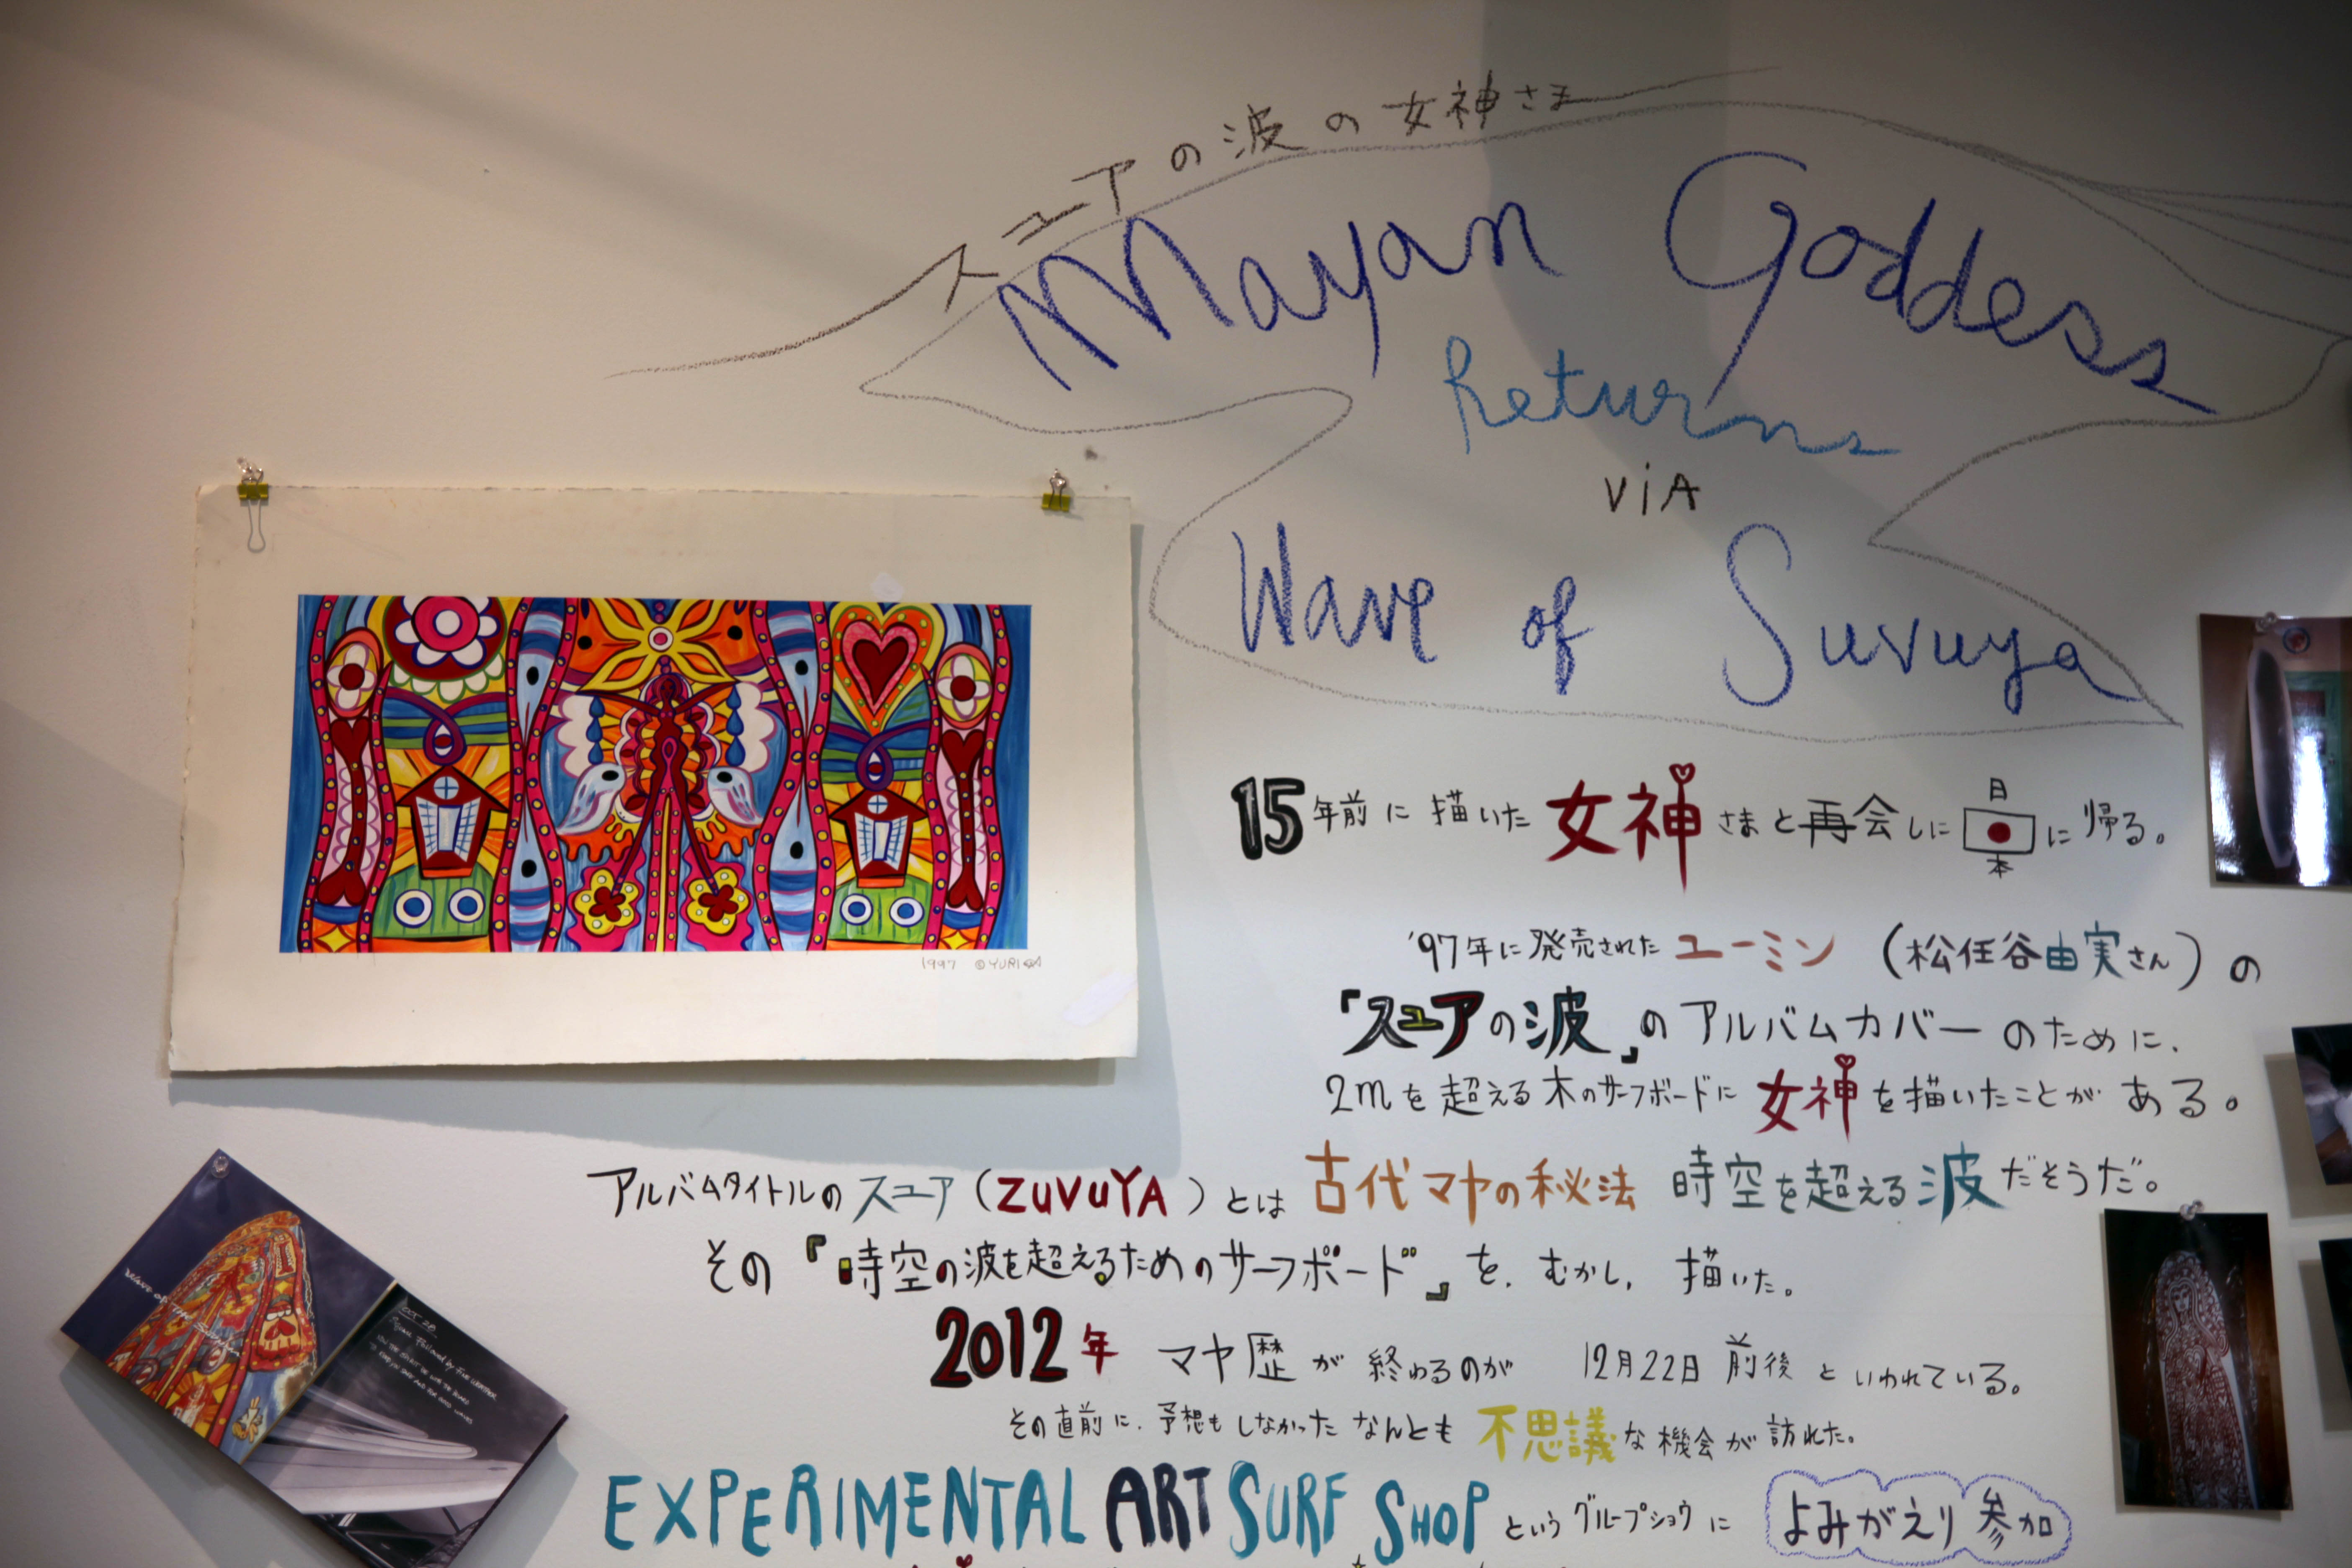 スユアの波の女神さま
Mayan Goddess
Returns
ViA
Wave of Suvuya
15年前に描いた女神さまと再会しに日本に帰る。
'97年に発売されたユーミン(松任谷由実さん)の
『スユアの波』のアルバムカバーのために、
2mを超える木のサーフボードに女神を描いたことがある。
アルバムタイトルのスユア(ZUVUYA)とは古代マヤの秘法 時空を超える波だそうだ。
その『時空の波を超えるためのサーフボード』を、むかし、描いた。
2012年 マヤ歴が終わるのが 12月22日前後といわれている。
その直前に、予想もしなかったなんとも不思議な機会が訪れた。
EXPERIMENTAL ART SURF SHOP というグループショウに よみがえり参加
1997 ©YURI
OCT 28